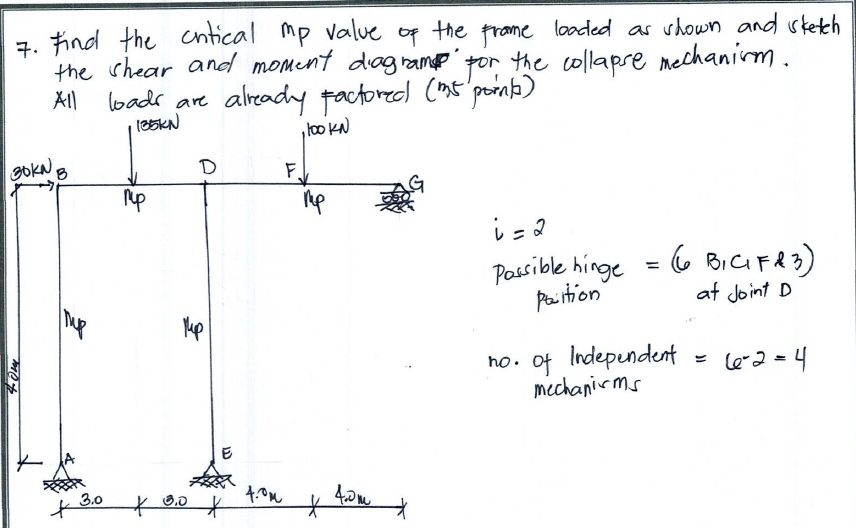 7. Find the critical Mp value of the frame loaded as shown and sketch
the shear and moment diagrams for the collapse mechanism.
All loads are already factored ( points)
135KN
100 KN
30KN B
D
F
G
Mp
Mp
i = 2
Possible hinge = (6 B, C, F & 3)
position at Joint D
Mp
Mp
4.0m
no. of Independent = 6-2 = 4
mechanisms
A
E
3.0
3.0
4.0m
4.0m